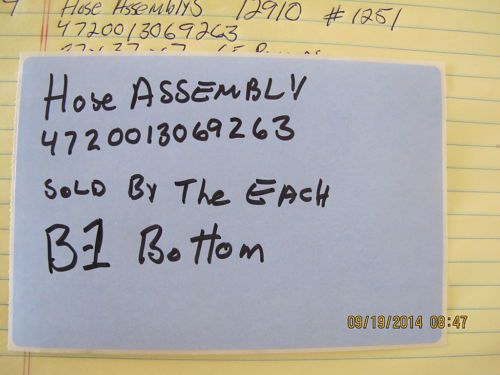 Hose Assemblys 12910 #1251
4720013069263
Hose ASSEMBLY
4720013069263
SOLD By The EACH
B-1 Bottom
09/19/2014 08:47